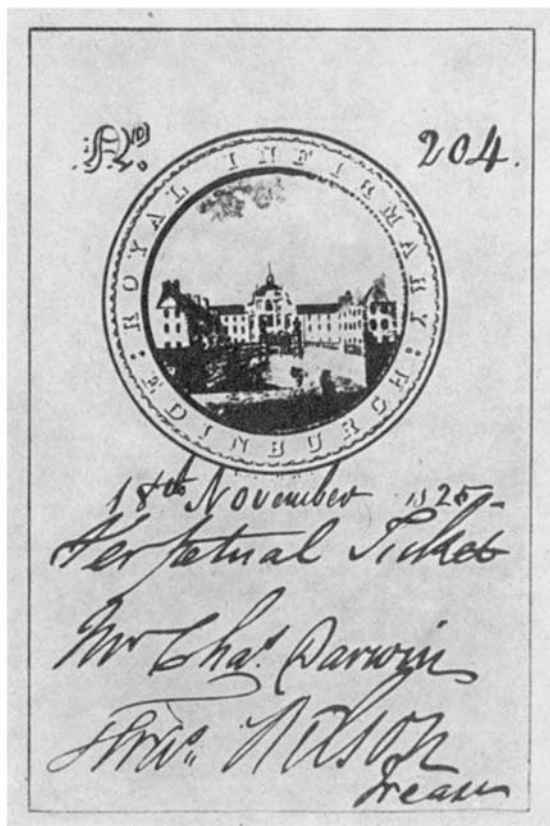 No. 204.
ROYAL INFIRMARY : EDINBURGH :
18th November 1825
Perpetual Ticket
Mr Chas. Darwin
Fras. Wilson
Treasr